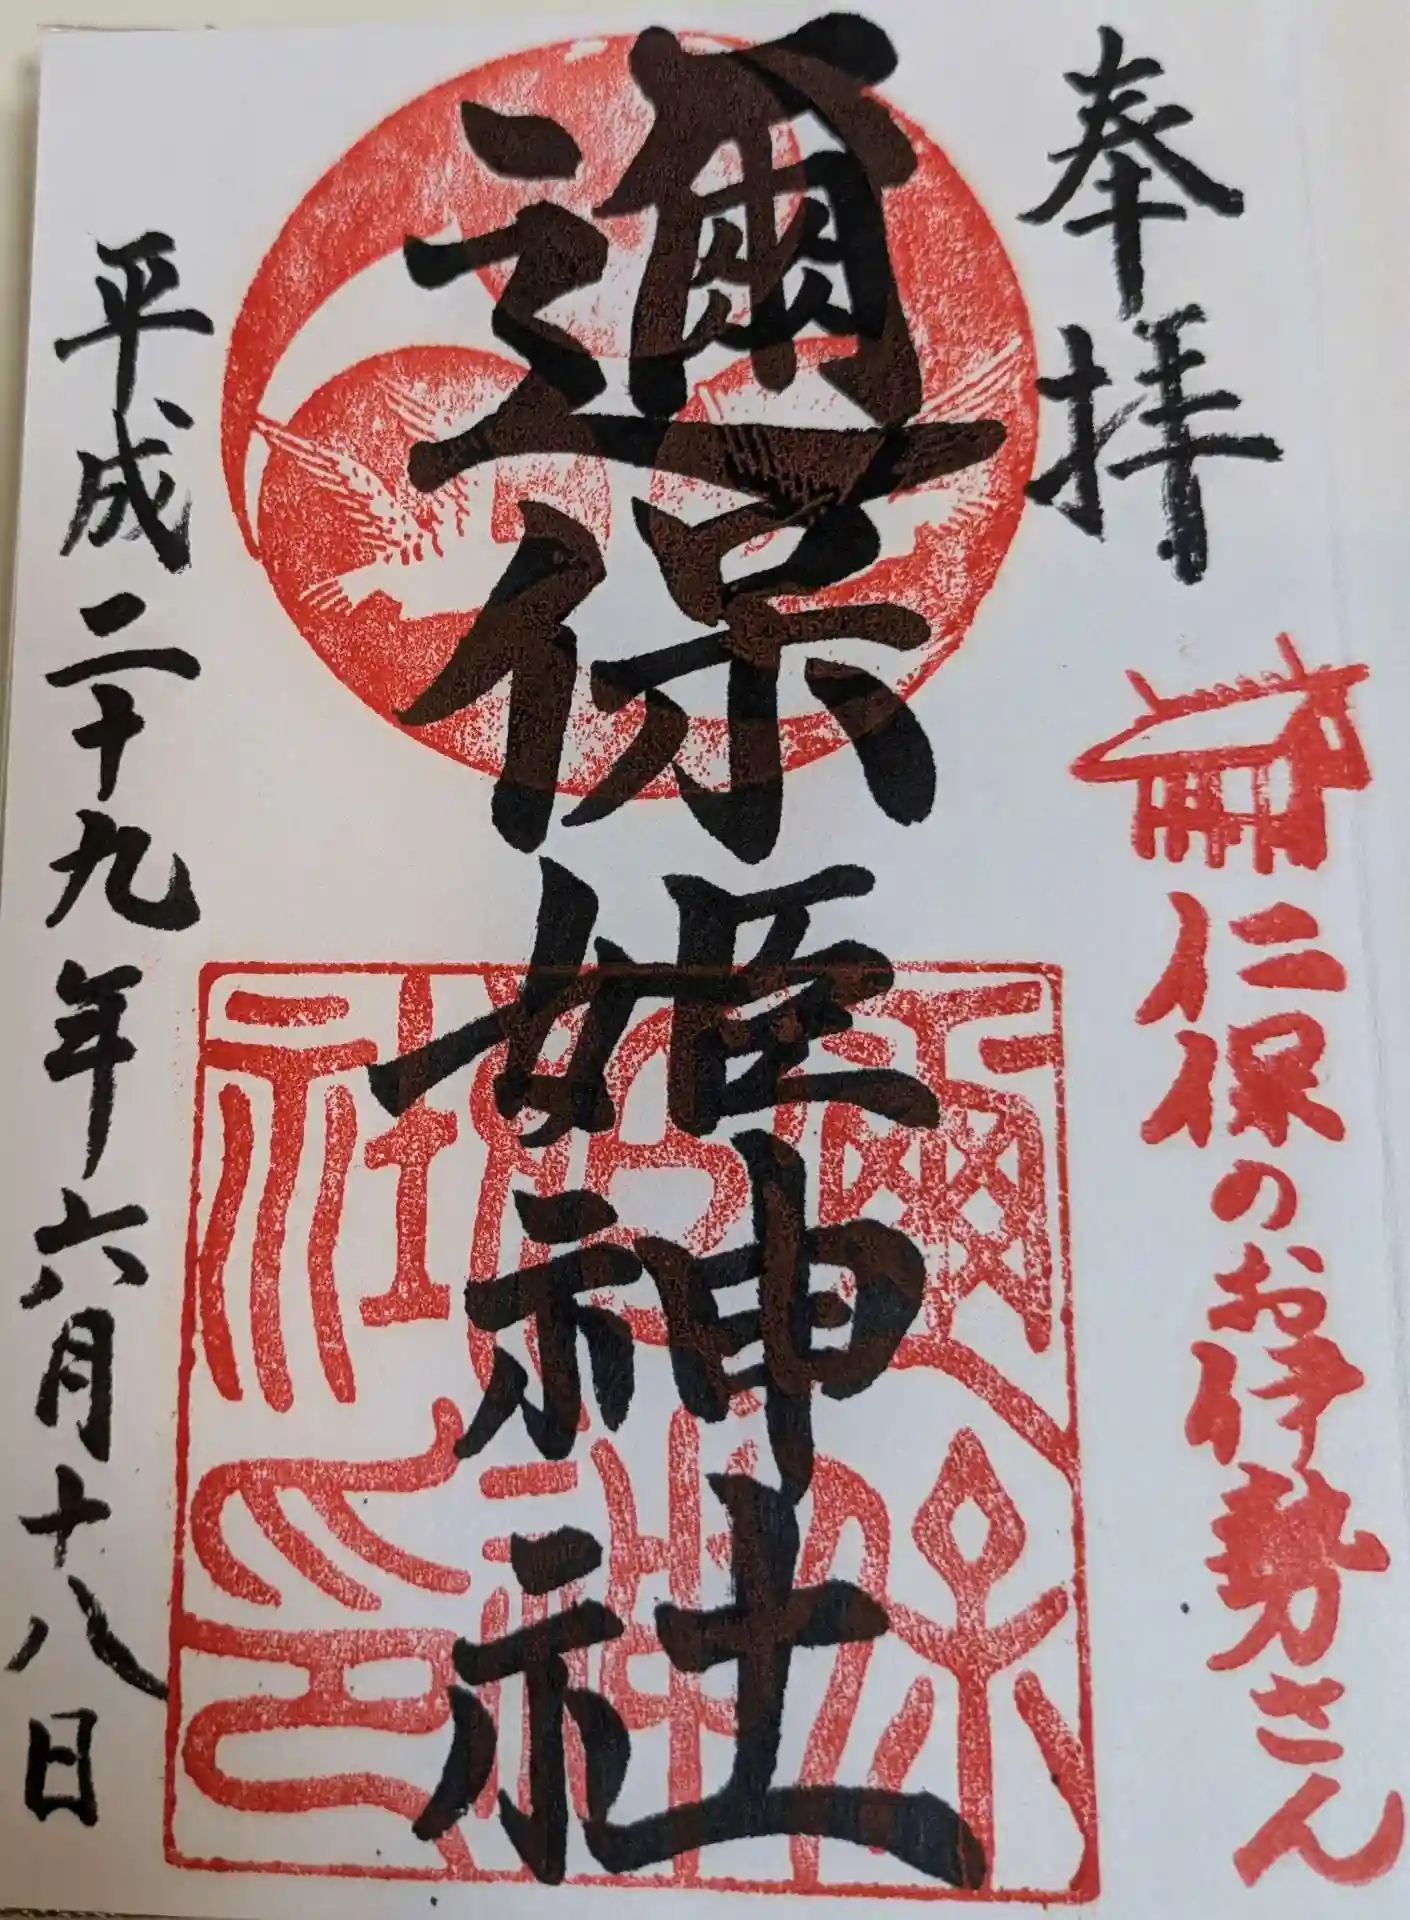 奉拝
仁保のお伊勢さん
邇保姫神社
邇保姫神社印
平成二十九年六月十八日